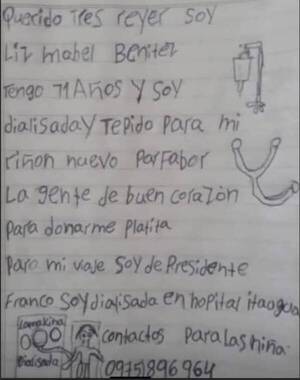 Querido Tres reyer soy
Liz mabel Benitez
Tengo 11 Años y soy
dialisada y Te pido Para mi
riñon nuevo Porfabor
La gente de buen corazón
Para donarme Platita
Paro mi vaje soy de Presidente
Franco soy dialisada en hopital itaogua
Lamakina
Dialisada
contactos Para Las niña
0975 896 964